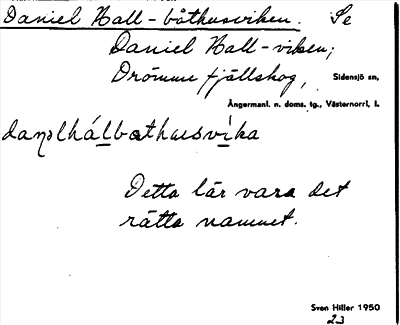 Daniel Hall-båthusviken. Se
Daniel Hall-viken;
Drömme fjällskog, Sidensjö sn,
Ångermanl. n. doms. tg., Västernorrl. l.
Detta lär vara det
rätta namnet.
Sven Hiller 1950
23